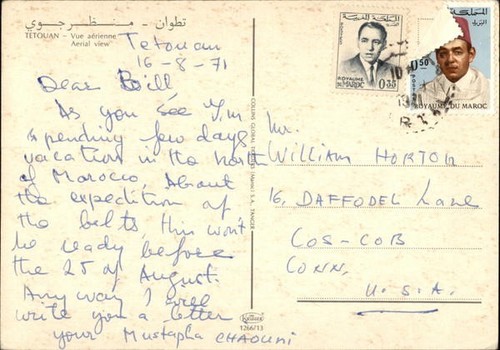 تطوان - منظر جوي
TETOUAN - Vue aérienne
Aerial view
Tetouan
16-8-71
Dear Bill
As you see I'm
spending few days
vacation in the north
of Morocco. About
the expedition of
the belts, this won't
be ready before
the 25 of August.
Any way I will
write you a letter
your Mustapha CHAOUNI
1266/13
المملكة المغربية
ROYAUME
DU MAROC
0,35
المملكة
0,50
POSTES
ROYAUME DU MAROC
Mr.
William HORTON
16, DAFFODEL Lane
COS-COB
CONN.
U.S.A.